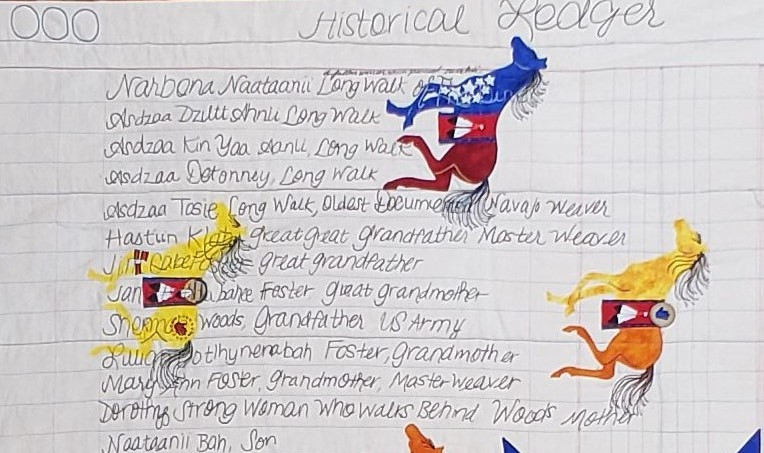 Historical Ledger
Narbona Naataanii Long Walk of
Asdzaa Dziltt Ahnii Long Walk
Asdzaa Kin Yaa aanii, Long Walk
Asdzaa Detonney, Long Walk
Asdzaa Tosie Long Walk, Oldest Document Navajo Weaver
Hastun great great grandfather Master Weaver
great grandfather
Foster great grandmother
Woods, Grandfather US Army
Foster, Grandmother
Mary Ann Foster, Grandmother, Master Weaver
Dorothy Strong Woman Who Walks Behind Woods Mother
Naataanii Bah, Son